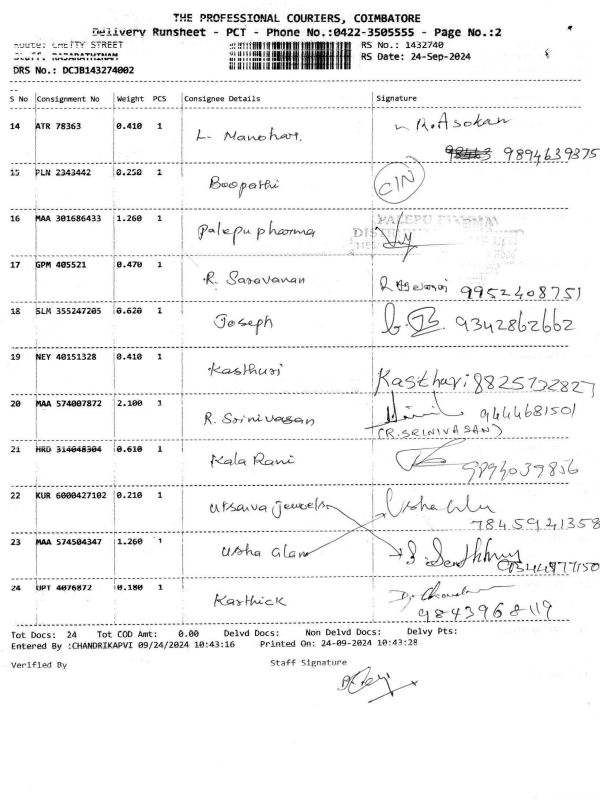 THE PROFESSIONAL COURIERS, COIMBATORE
Delivery Runsheet - PCT - Phone No.:0422-3505555 - Page No.:2
Route: CHETTY STREET RS No.: 1432740
Staff: RAJARATHINAM RS Date: 24-Sep-2024
DRS No.: DCJB143274002
S No Consignment No Weight PCS Consignee Details Signature
14 ATR 78363 0.410 1 L. Manohar. R. Asokan
9894639375
15 PLN 2343442 0.250 1 Boopathi CIN
16 MAA 301686433 1.260 1 Palepu pharma PALEPU PHARMA
17 GPM 405521 0.470 1 R. Saravanan 9952408751
18 SLM 355247205 0.620 1 Joseph 9342862662
19 NEY 40151328 0.410 1 Kasthuri Kasthuri 8825732827
20 MAA 574007872 2.100 1 R. Srinivasan 9444681501
(R.SRINIVASAN)
21 HRD 314048304 0.610 1 Kala Rani 9894039856
22 KUR 6000427102 0.210 1 Utsava Jewels
7845941358
23 MAA 574504347 1.260 1 Usha Glam
24 UPT 4076872 0.180 1 Karthick
9843968119
Tot Docs: 24 Tot COD Amt: 0.00 Delvd Docs: Non Delvd Docs: Delvy Pts:
Entered By :CHANDRIKAPVI 09/24/2024 10:43:16 Printed On: 24-09-2024 10:43:28
Verified By Staff Signature